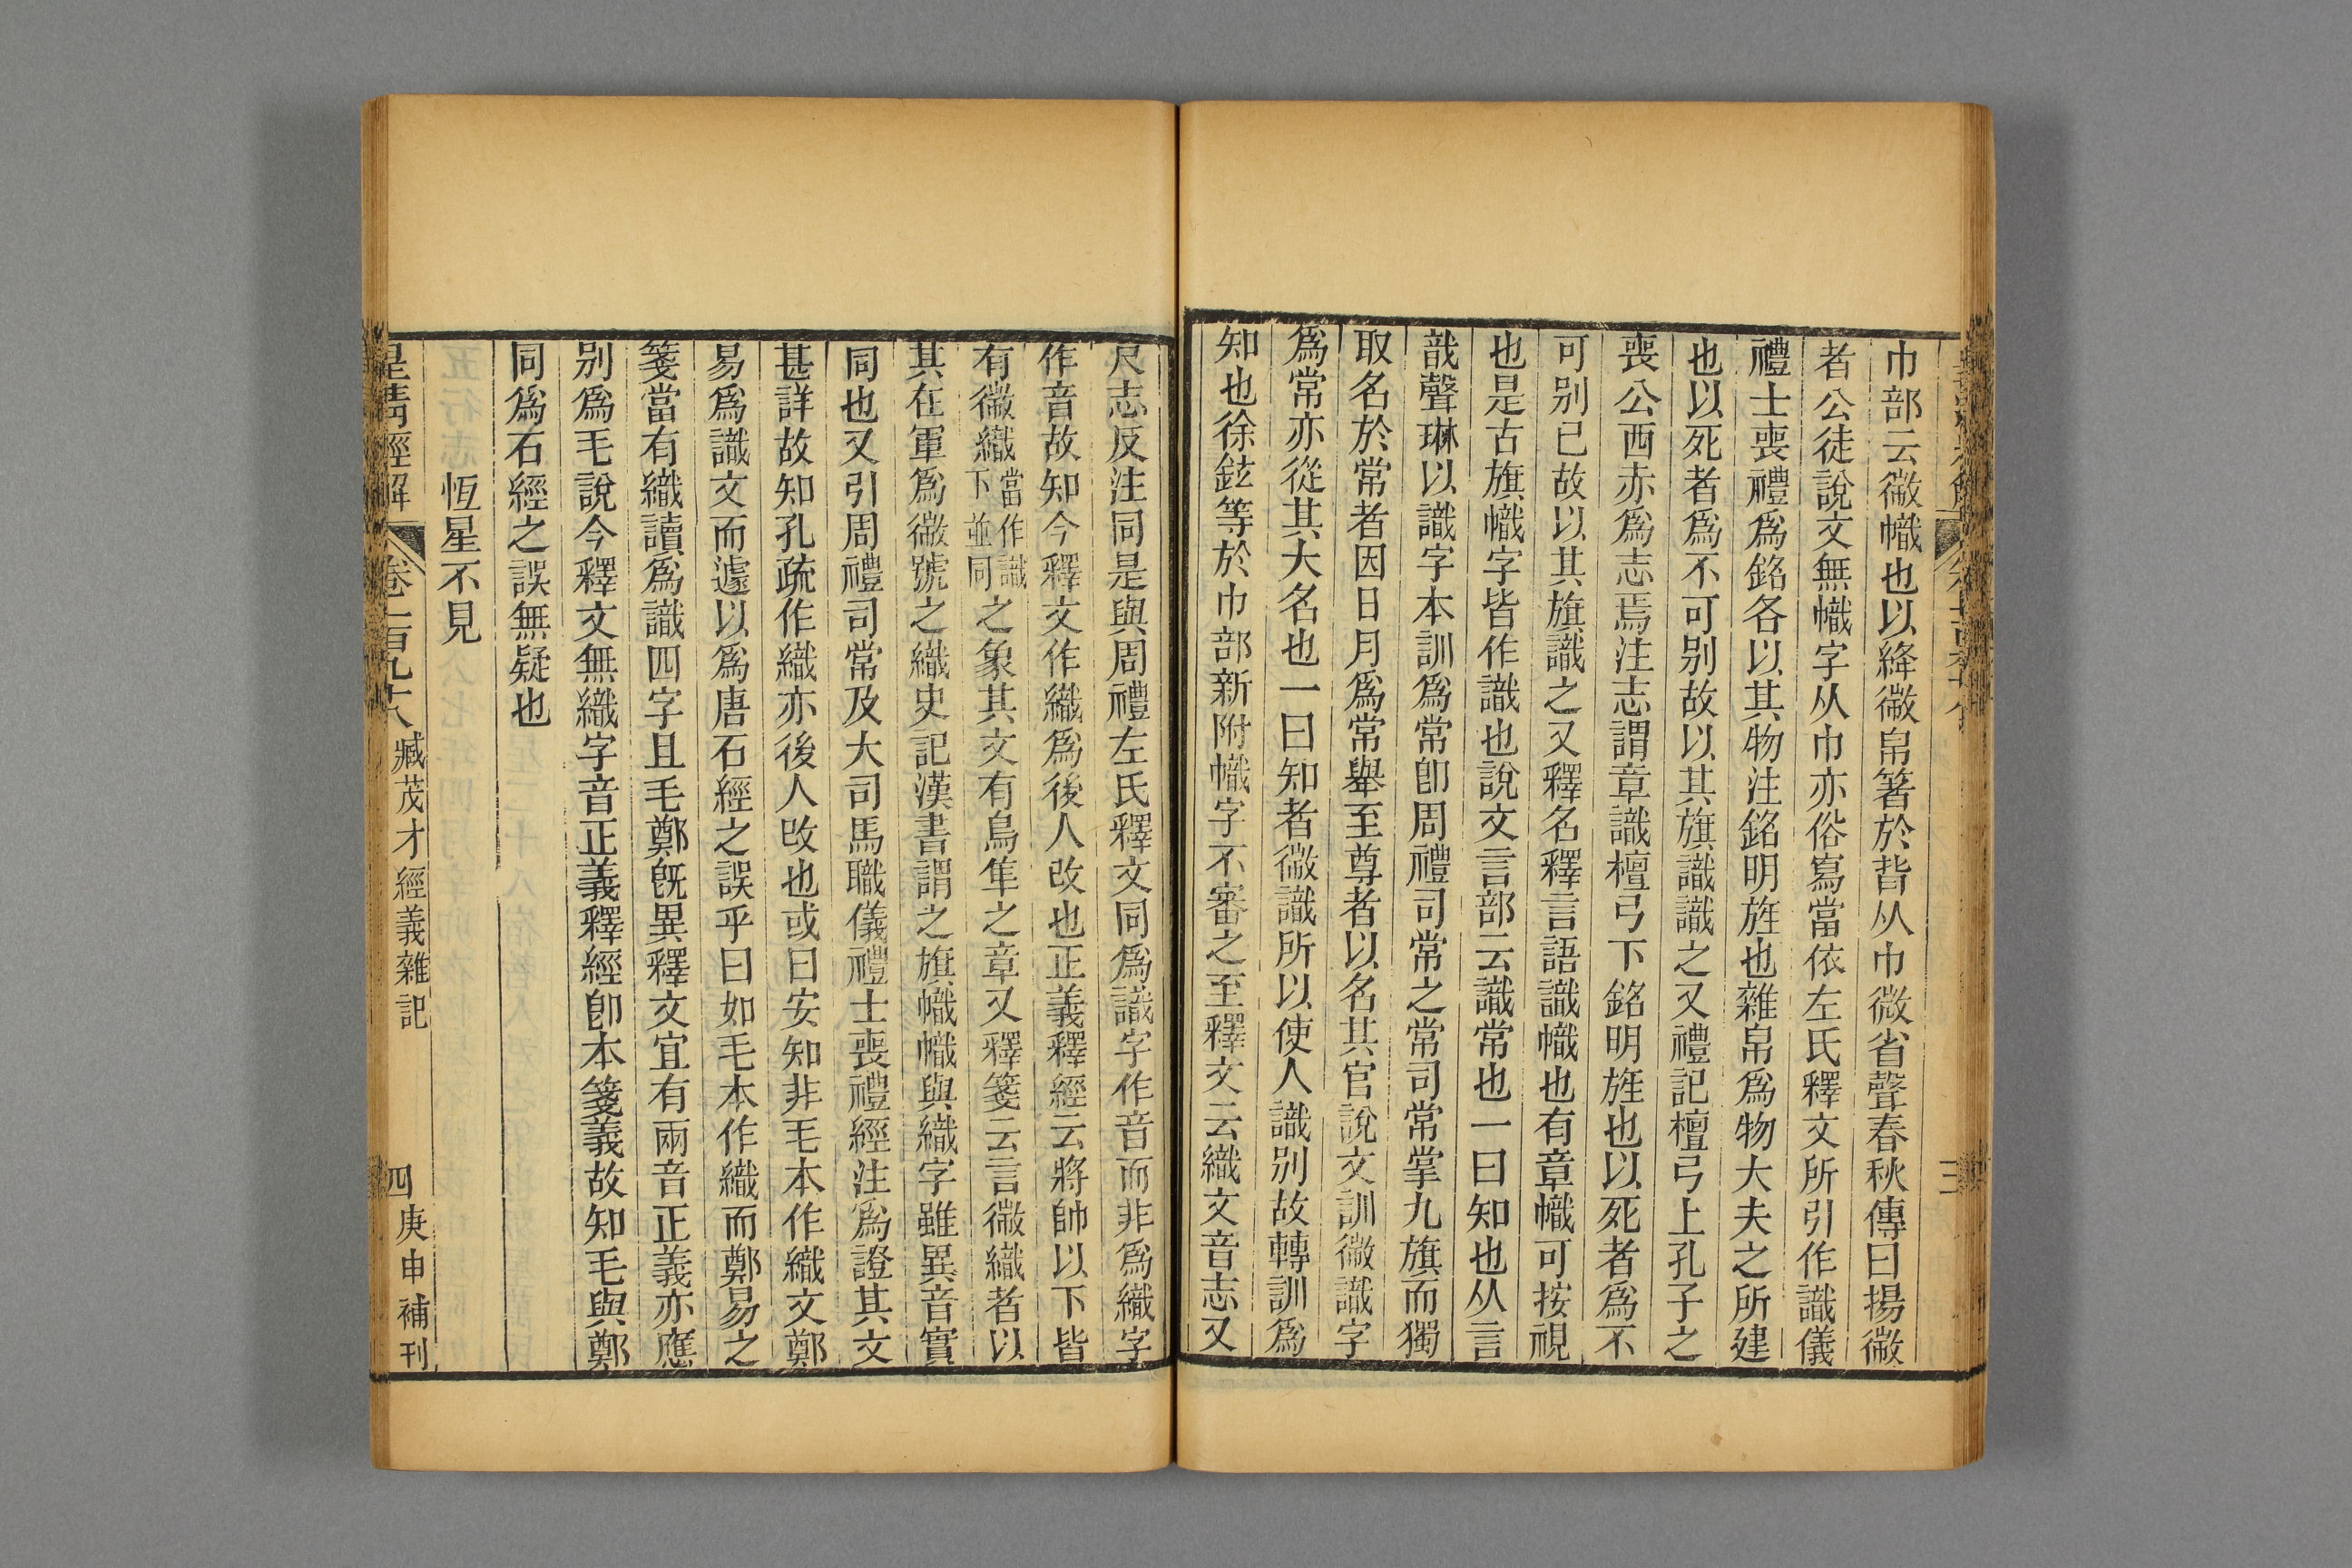 巾部云徽幟也以絳徽帛箸於背从巾微省聲春秋傳曰揚徽
者公徒說文無幟字从巾亦俗寫當依左氏釋文所引作識儀
禮士喪禮爲銘各以其物注銘明旌也雜帛爲物大夫之所建
也以死者爲不可别故以其旗識識之又禮記檀弓上孔子之
喪公西赤爲志焉注志謂章識檀弓下銘明旌也以死者爲不
可别已故以其旗識之又釋名釋言語識幟也有章幟可按視
也是古旗幟字皆作識也說文言部云識常也一曰知也从言
戠聲琳以識字本訓爲常卽周禮司常之常司常掌九旗而獨
取名於常者因日月爲常舉至尊者以名其官說文訓徽識字
爲常亦從其大名也一曰知者徽識所以使人識别故轉訓爲
知也徐鉉等於巾部新附幟字不審之至釋文云織文音志又
尺志反注同是與周禮左氏釋文同爲識字作音而非爲織字
作音故知今釋文作織爲後人改也正義釋經云將帥以下皆
有徽織當作識下並同之象其文有鳥隼之章又釋箋云言徽織者以
其在軍爲徽號之織史記漢書謂之旗幟幟與織字雖異音實
同也又引周禮司常及大司馬職儀禮士喪禮經注爲證其文
甚詳故知孔疏作織亦後人改也或曰安知非毛本作織文鄭
易爲識文而遽以爲唐石經之誤乎曰如毛本作織而鄭易之
箋當有織讀爲識四字且毛鄭旣異釋文宜有兩音正義亦應
别爲毛說今釋文無織字音正義釋經卽本箋義故知毛與鄭
同爲石經之誤無疑也
恆星不見
皇淸經解 卷二百九十八 臧茂才經義雜記 四 庚申補刊